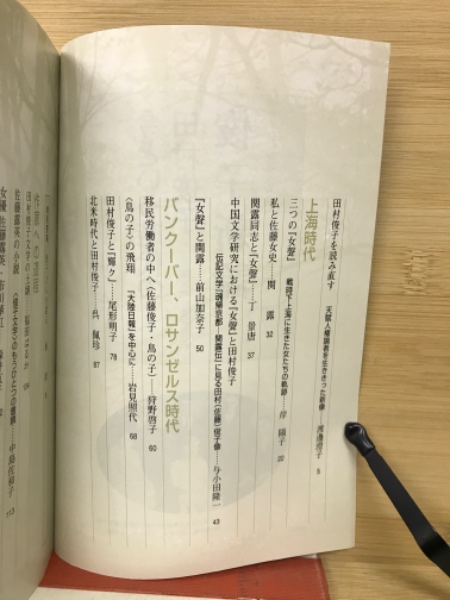 田村俊子を読み直す
天賦人権論者を生ききった新像……渡邊澄子 5
上海時代
三つの『女聲』
戦時下上海に生きた女たちの軌跡……岸 陽子 20
私と佐藤女史……関 露 32
関露同志と『女聲』……丁 景唐 37
中国文学研究における『女聲』と田村俊子
伝記文学『魂帰京都―関露伝』に見る田村(佐藤)俊子像……与小田隆一 43
『女聲』と関露……前山加奈子 50
バンクーバー、ロサンゼルス時代
移民労働者の中へ〈佐藤俊子・鳥の子〉……狩野啓子 60
〈鳥の子〉の飛翔
『大陸日報』を中心に……岩見照代 68
田村俊子と『輝ク』……尾形明子 78
北米時代と田村俊子……呉 佩珍 87
作家への道程
田村俊子文学の
佐藤露英の小説
〈俊子文学〉のもうひとつの機縁……中島佐和子 113
女優 佐藤露英・市川華紅